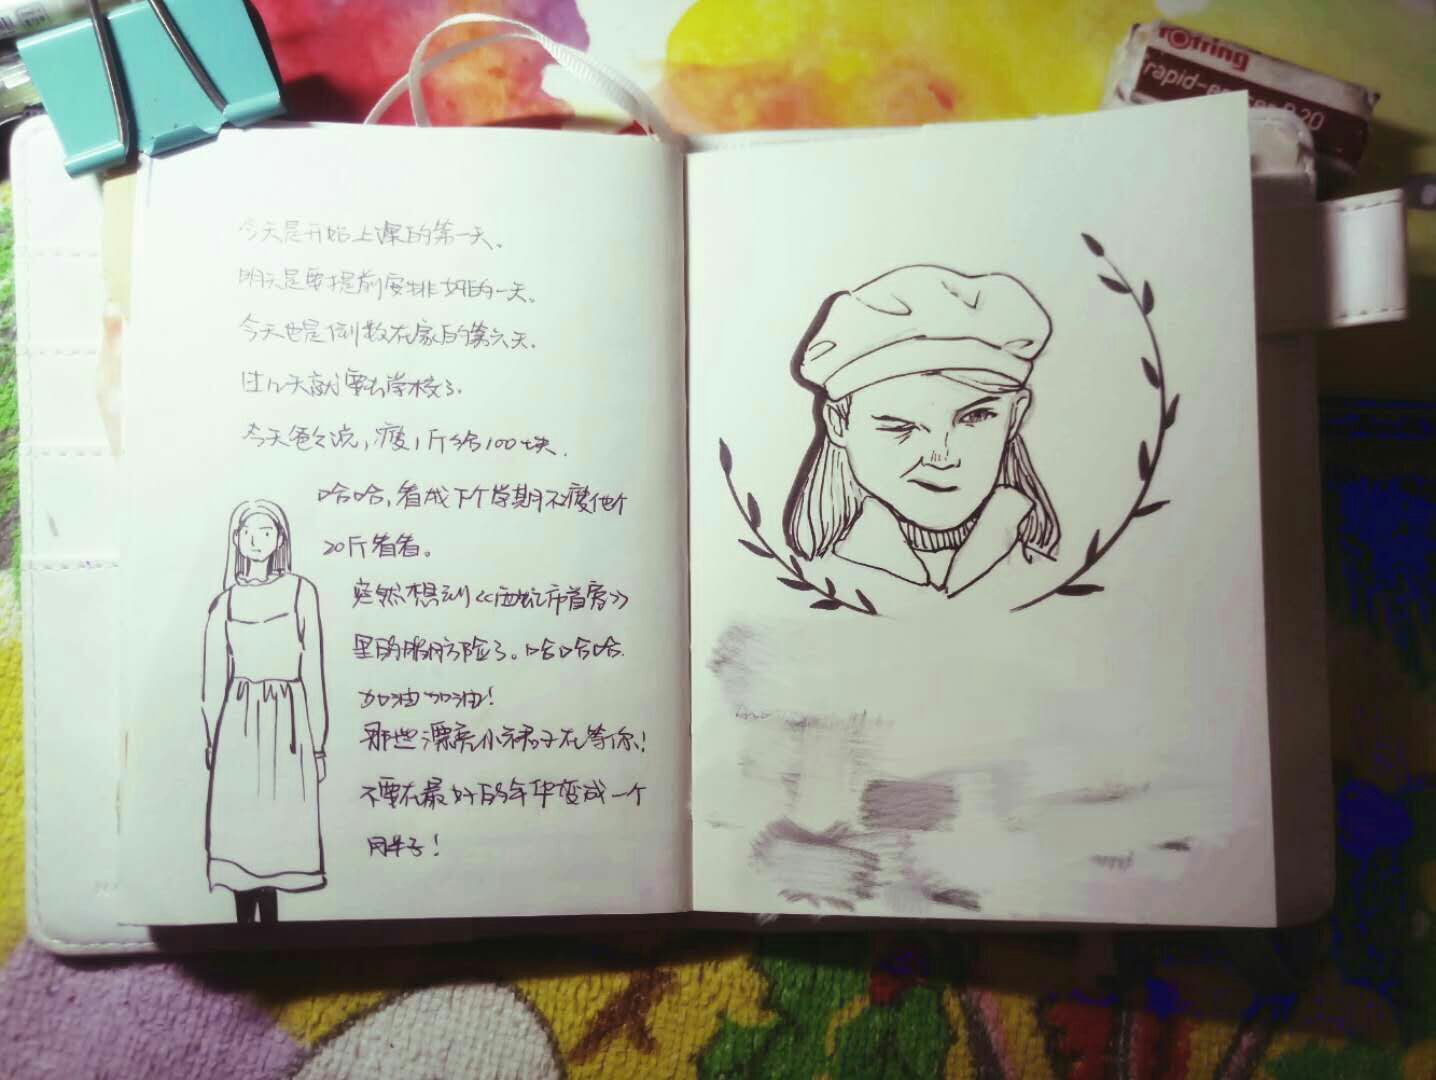 今天是开始上课的第一天。
明天是要提前安排好的一天。
今天也是倒数在家的第六天。
过几天就要去学校了.
今天爸爸说，瘦1斤给100块.
哈哈，看我下个学期不瘦他个
20斤看看。
突然想到《西虹市首富》
里的脂肪险了。哈哈哈.
加油加油！
那些漂亮小裙子在等你！
不要在最好的年华变成一个
胖子！
rotring
rapid-eraser B 20